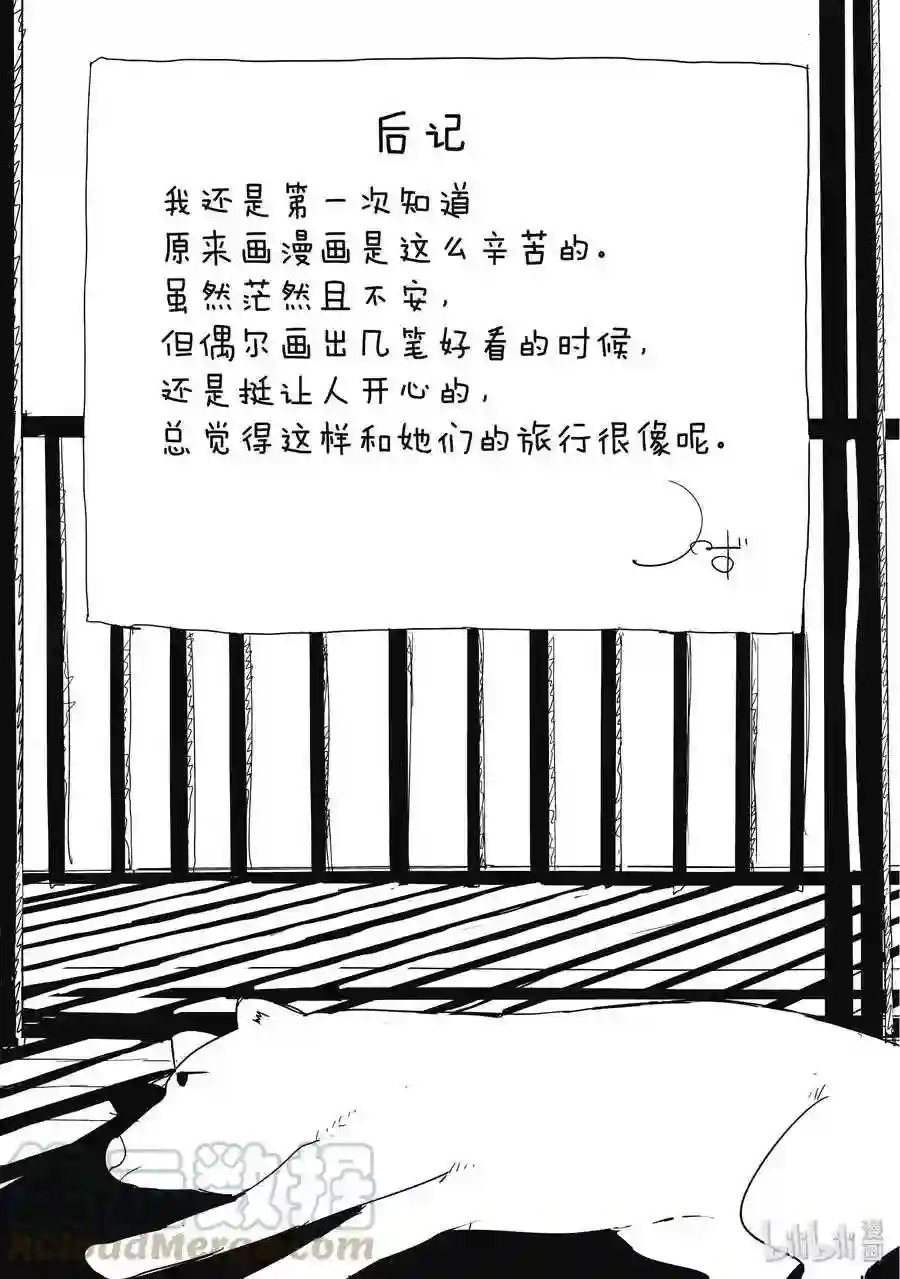 后记
我还是第一次知道
原来画漫画是这么辛苦的。
虽然茫然且不安，
但偶尔画出几笔好看的时候，
还是挺让人开心的，
总觉得这样和她们的旅行很像呢。
つくみず
AcloudMerge.com
bilibili 漫画